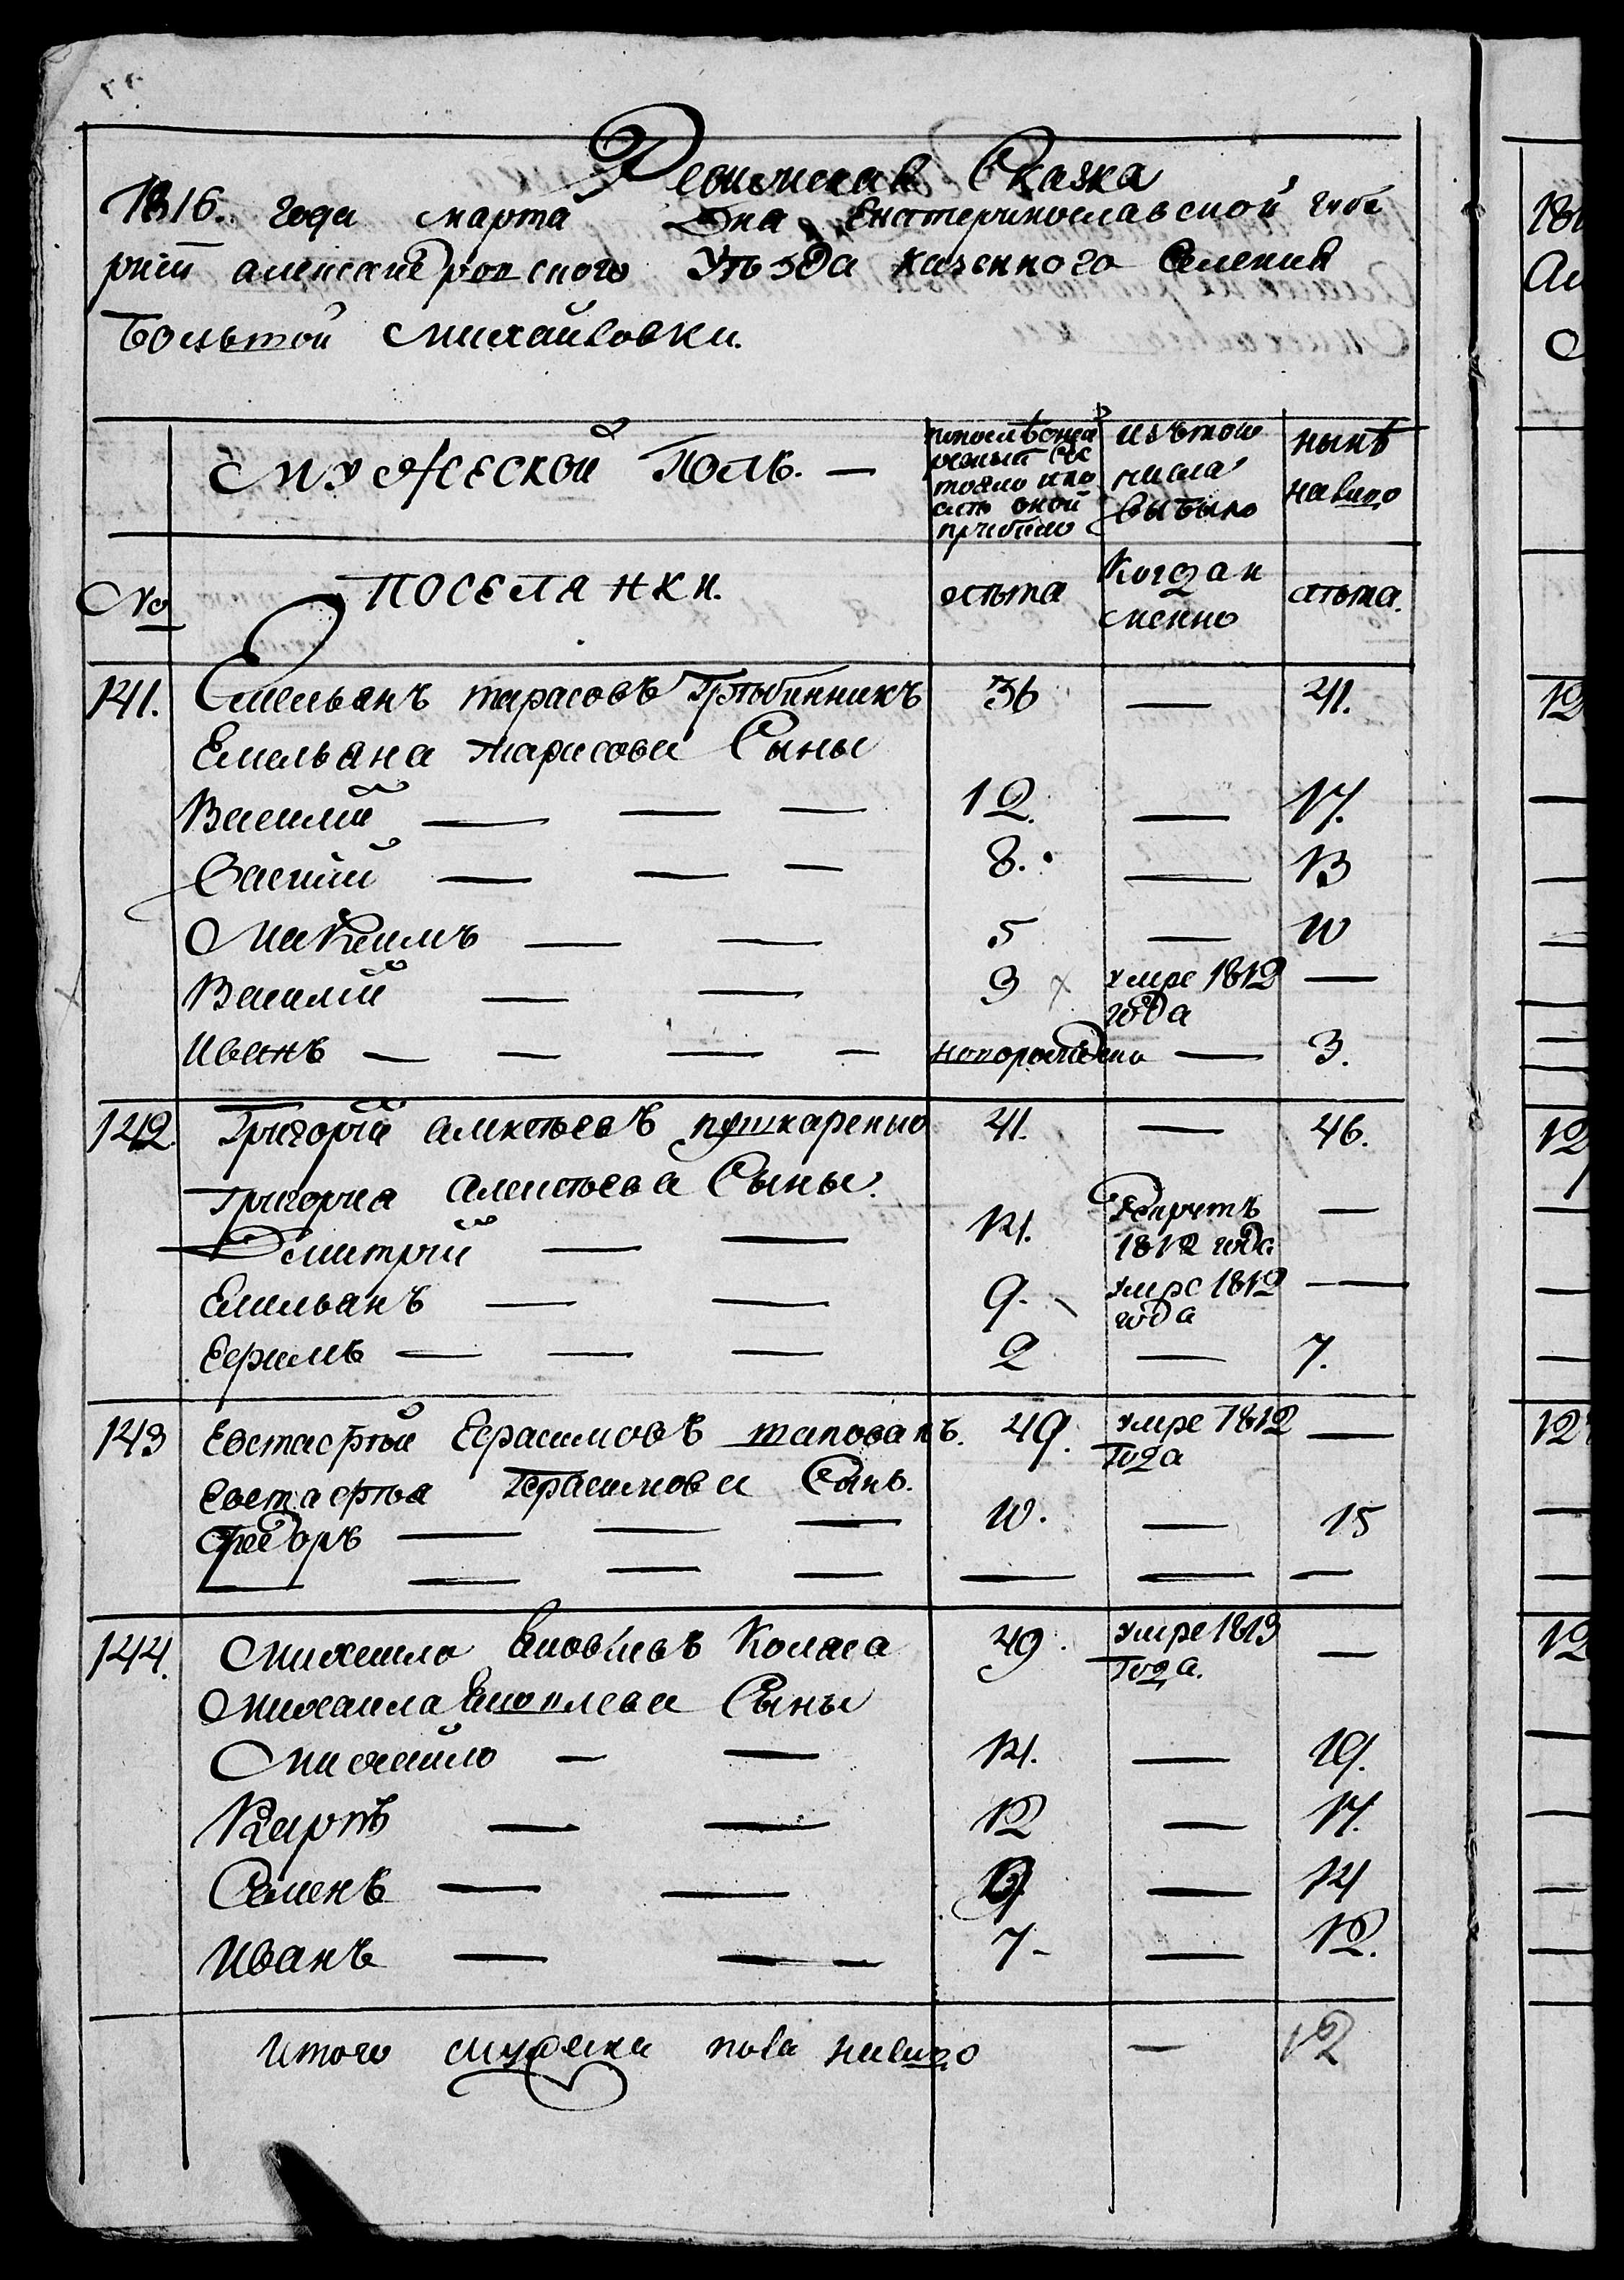 Ревижская Сказка
1816. года марта дна Екатеринославской губе
рніи александровского Уѣзда казенного Селения
Большой Михайловки.
Мужеской Полъ. —
попослѣдней ревизіи сос тояло и по слѣ оной прибыло
изътого числа выбыло
нынѣ налицо
№ поселянки. лѣта Когда и менно лѣта.
141. Емельянъ тарасовъ Грѣбинникъ 36 — 41.
Емельяна тарасова Сыны
Василій — — — 12. — 17.
Василій — — — 8. — 13
Максимъ — — 5 — 10
Василій — — 3 х умре 1812 года —
Иванъ — — — — новорожденъ — 3.
142 Григорій алексѣевъ пушкаренко 41. — 46.
Григория алексѣева Сыны.
Дмитрій — — 14. Рекрутъ 1812 года —
Емильанъ — — 9. умре 1812 года —
Ефимъ — — — 2 — 7.
143 Евстафѣй Герасимовъ шаповалъ. 49. умре 1812 года —
Евстафѣя Герасимова Сынъ.
Федоръ — — — 10. — 15
— — — — — — —
144. Михайло Яковлевъ Коласа 49 умре 1813 года. —
Михаила Яковлева Сыны
Михайло — — 14. — 19.
Карпъ — — 12 — 17.
Семенъ — — 9 — 14
Иванъ — — — 7 — 12.
Итого мужеска пола налицо — 12